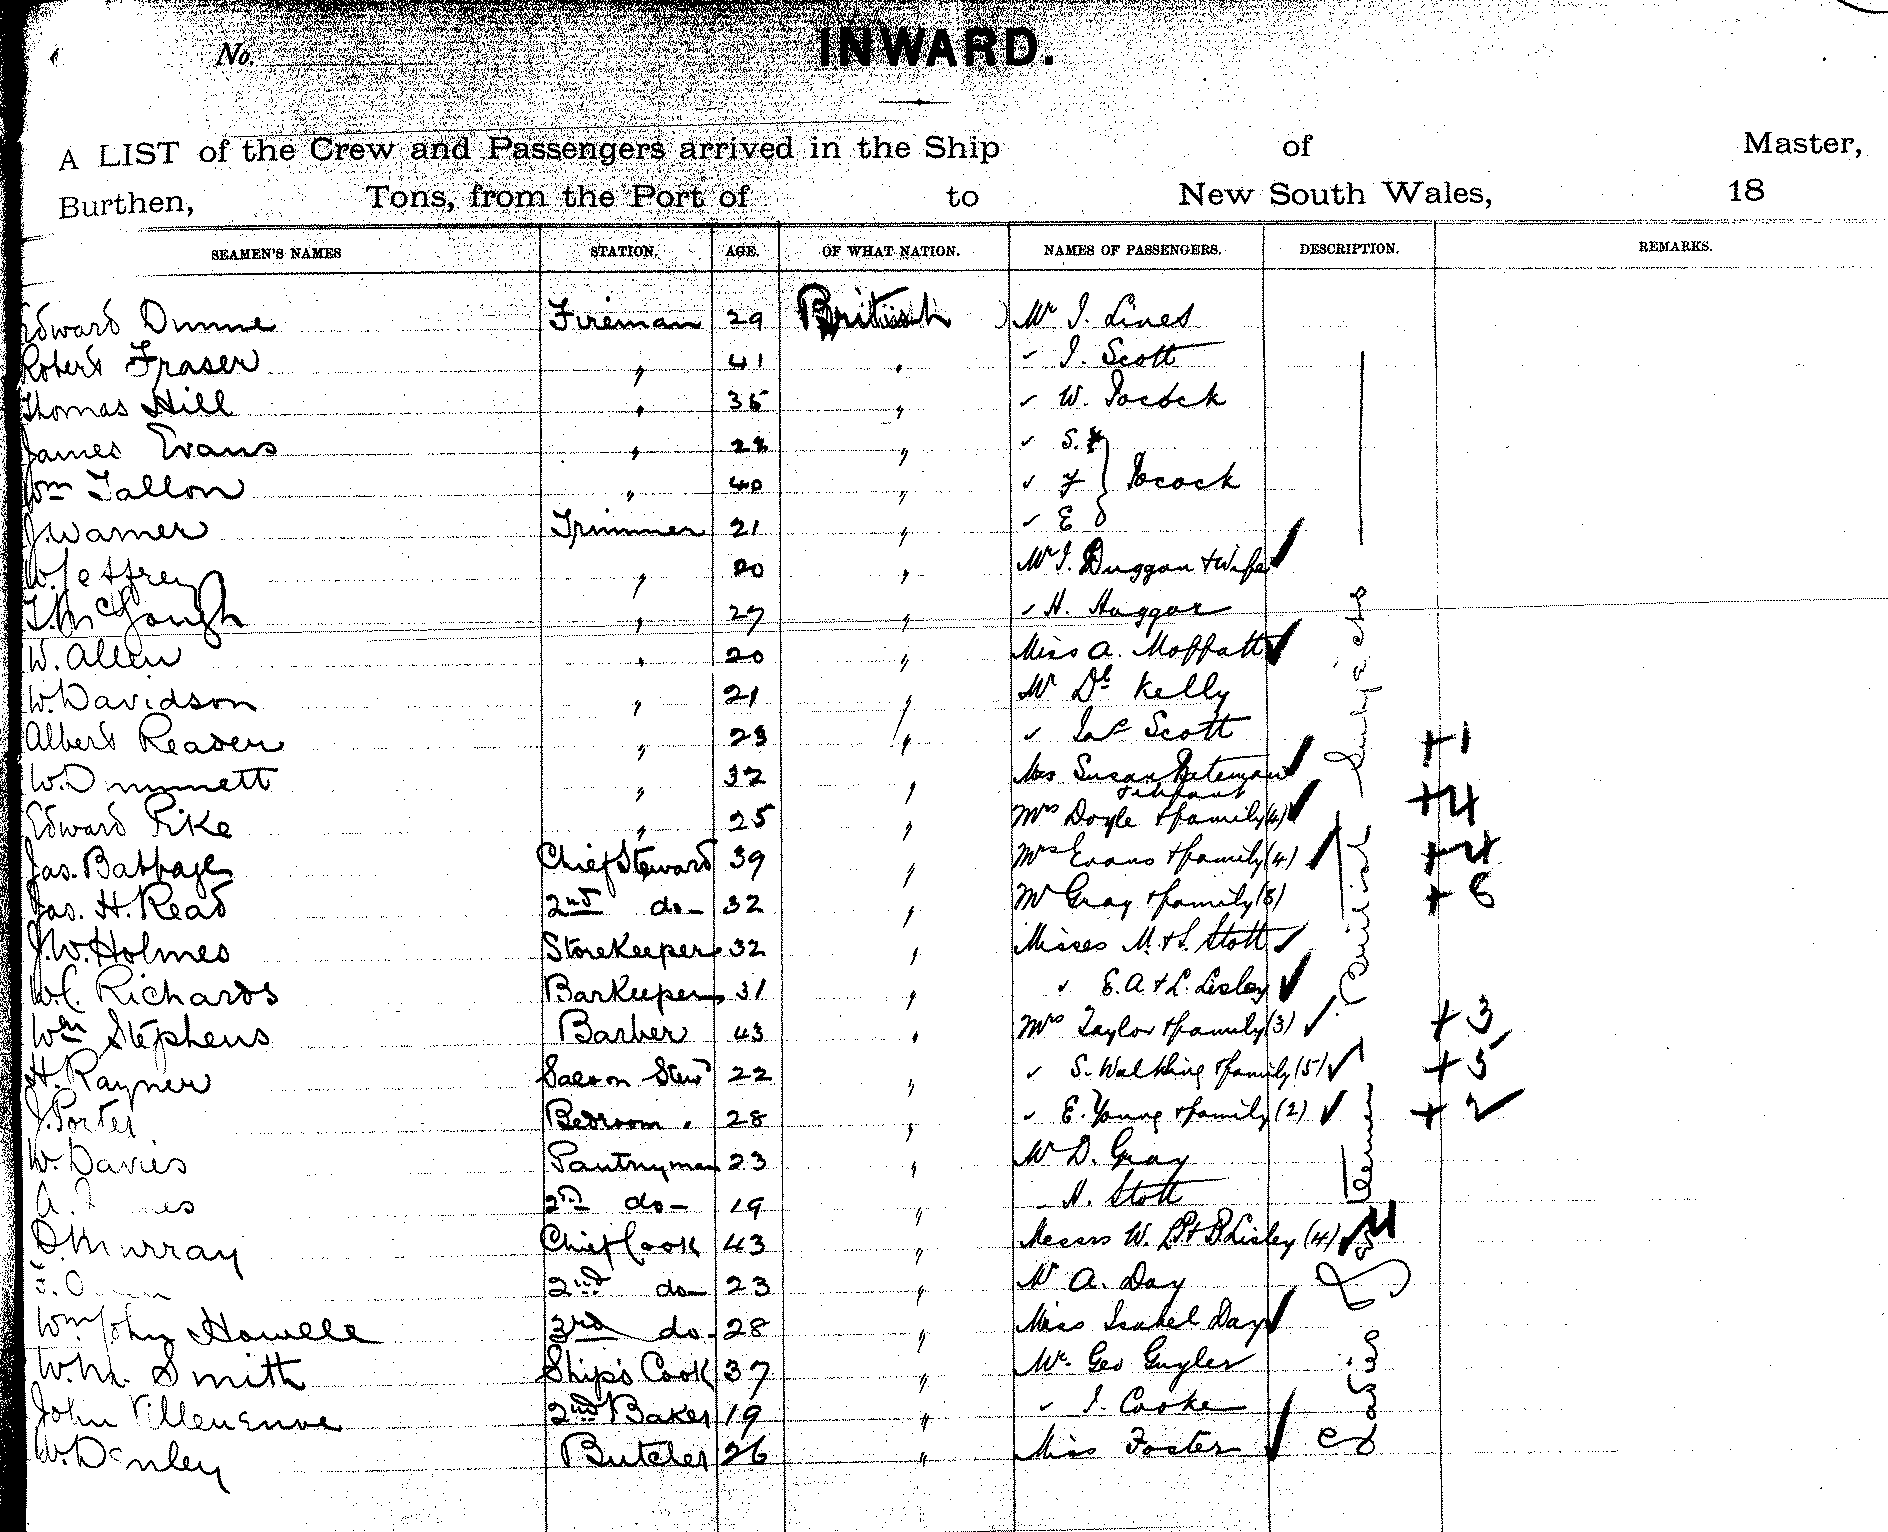 No.
INWARD.
A LIST of the Crew and Passengers arrived in the Ship of Master,
Burthen, Tons, from the Port of to New South Wales, 18
SEAMEN'S NAMES STATION. AGE. OF WHAT NATION. NAMES OF PASSENGERS. DESCRIPTION. REMARKS.
Edward Dunne Fireman 29 British Mr J. Lines
Robert Fraser " 41 " " J. Scott
Thomas Hill " 35 " " W. Pocock
James Evans " 28 " " S.
Wm Tallon " 40 " " F } Pocock
J. Warner Trimmer 21 " " E
W. Jeffrey " 20 " Mr J. Duggan + Wife
T. McGough " 27 " " H. Haggar
W. Allen " 20 " Miss A. Moffatt
W. Davidson " 21 " Mr Dl. Kelly
Albert Reader " 23 " " Jas Scott +1
W. Dummett " 32 " Mrs Susan Bateman
+ infant
Edward Pike " 25 " Mrs Doyle + family (4) +4
Jas. Babbage Chief Steward 39 " Mrs Evans + family (4) +4
Jas. H. Read 2nd do- 32 " Mr Gray + family (8) +8
J. W. Holmes StoreKeeper 32 " Misses M. + S. Stott
W. C. Richards BarKeeper 31 " " E. A. + L. Lisley
Wm Stephens Barber 43 " Mrs Taylor + family (3) +3
H. Rayner Saloon Stewd 22 " " S. Walkling + family (5) +5
J. Porter Bedroom " 28 " " E. Young + family (2) +2
W. Davies Pantryman 23 " Mr D. Gray
A. 2nd do- 19 " " H. Stott
D. Murray Chief Cook 43 " Messrs W. P + B Lisley (4) 4
2nd do- 23 " Mr A. Day
Wm John Howell 3rd do. 28 " Miss Isabel Day
Wm. Smith Ship's Cook 37 " Mr. Geo Guyler
John Villeneuve 2nd Baker 19 " " J. Cooke
W. Danley Butcher 26 " Miss Foster
British Subjects